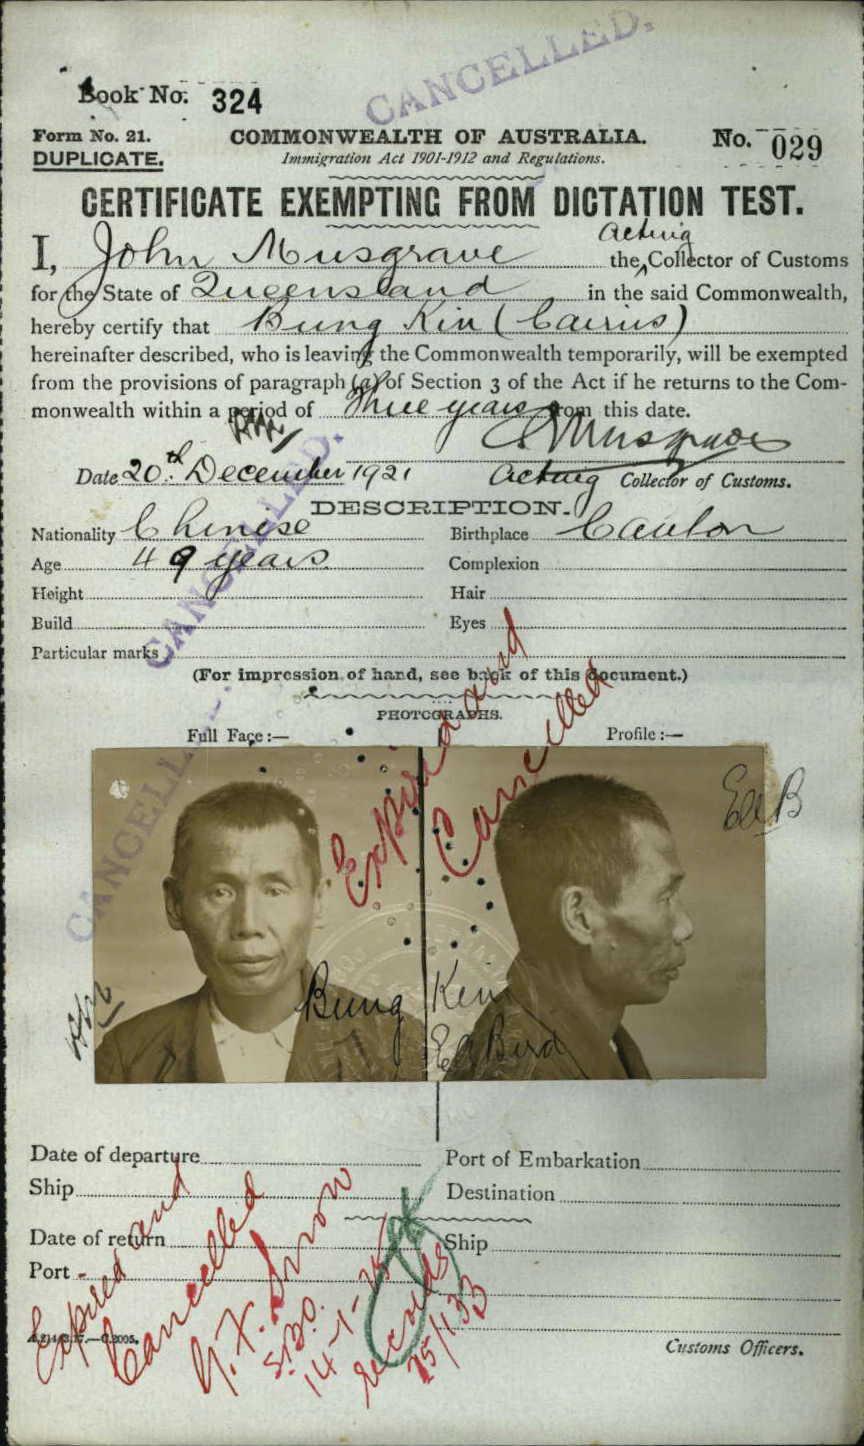 CANCELLED.
Book No. 324
Form No. 21.
DUPLICATE.
COMMONWEALTH OF AUSTRALIA.
Immigration Act 1901-1912 and Regulations.
No. 029
CERTIFICATE EXEMPTING FROM DICTATION TEST.
Acting
I, John Musgrave the Collector of Customs
for the State of Queensland in the said Commonwealth,
hereby certify that Bung Kin (Cairns)
hereinafter described, who is leaving the Commonwealth temporarily, will be exempted
from the provisions of paragraph (a) of Section 3 of the Act if he returns to the Com-
monwealth within a period of Three years from this date.
Musgrave
Date 20th December 1921 Acting Collector of Customs.
CANCELLED.
DESCRIPTION.
Nationality Chinese Birthplace Canton
Age 49 years Complexion
Height Hair
Build Eyes
Particular marks
(For impression of hand, see back of this document.)
PHOTOGRAPHS.
Full Face:— Profile:—
CANCELLED.
Expired and
Cancelled
Bung Kin
E A Bird
Date of departure Port of Embarkation
Ship Destination
Date of return Ship
Port
Expired and
Cancelled
14-1-25
records
25/1/33
Customs Officers.